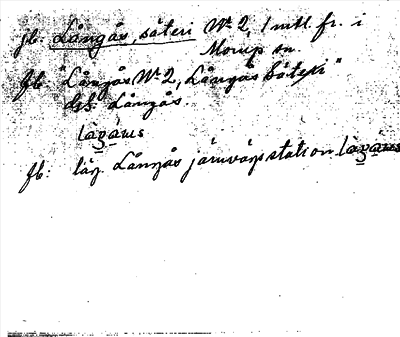 jb: Långås, säteri No 2, 1 mtl. fr. i
Morup sn.
jb "Långås No 2, Långås Säteri"
Långås
lång Långås järnvägsstation